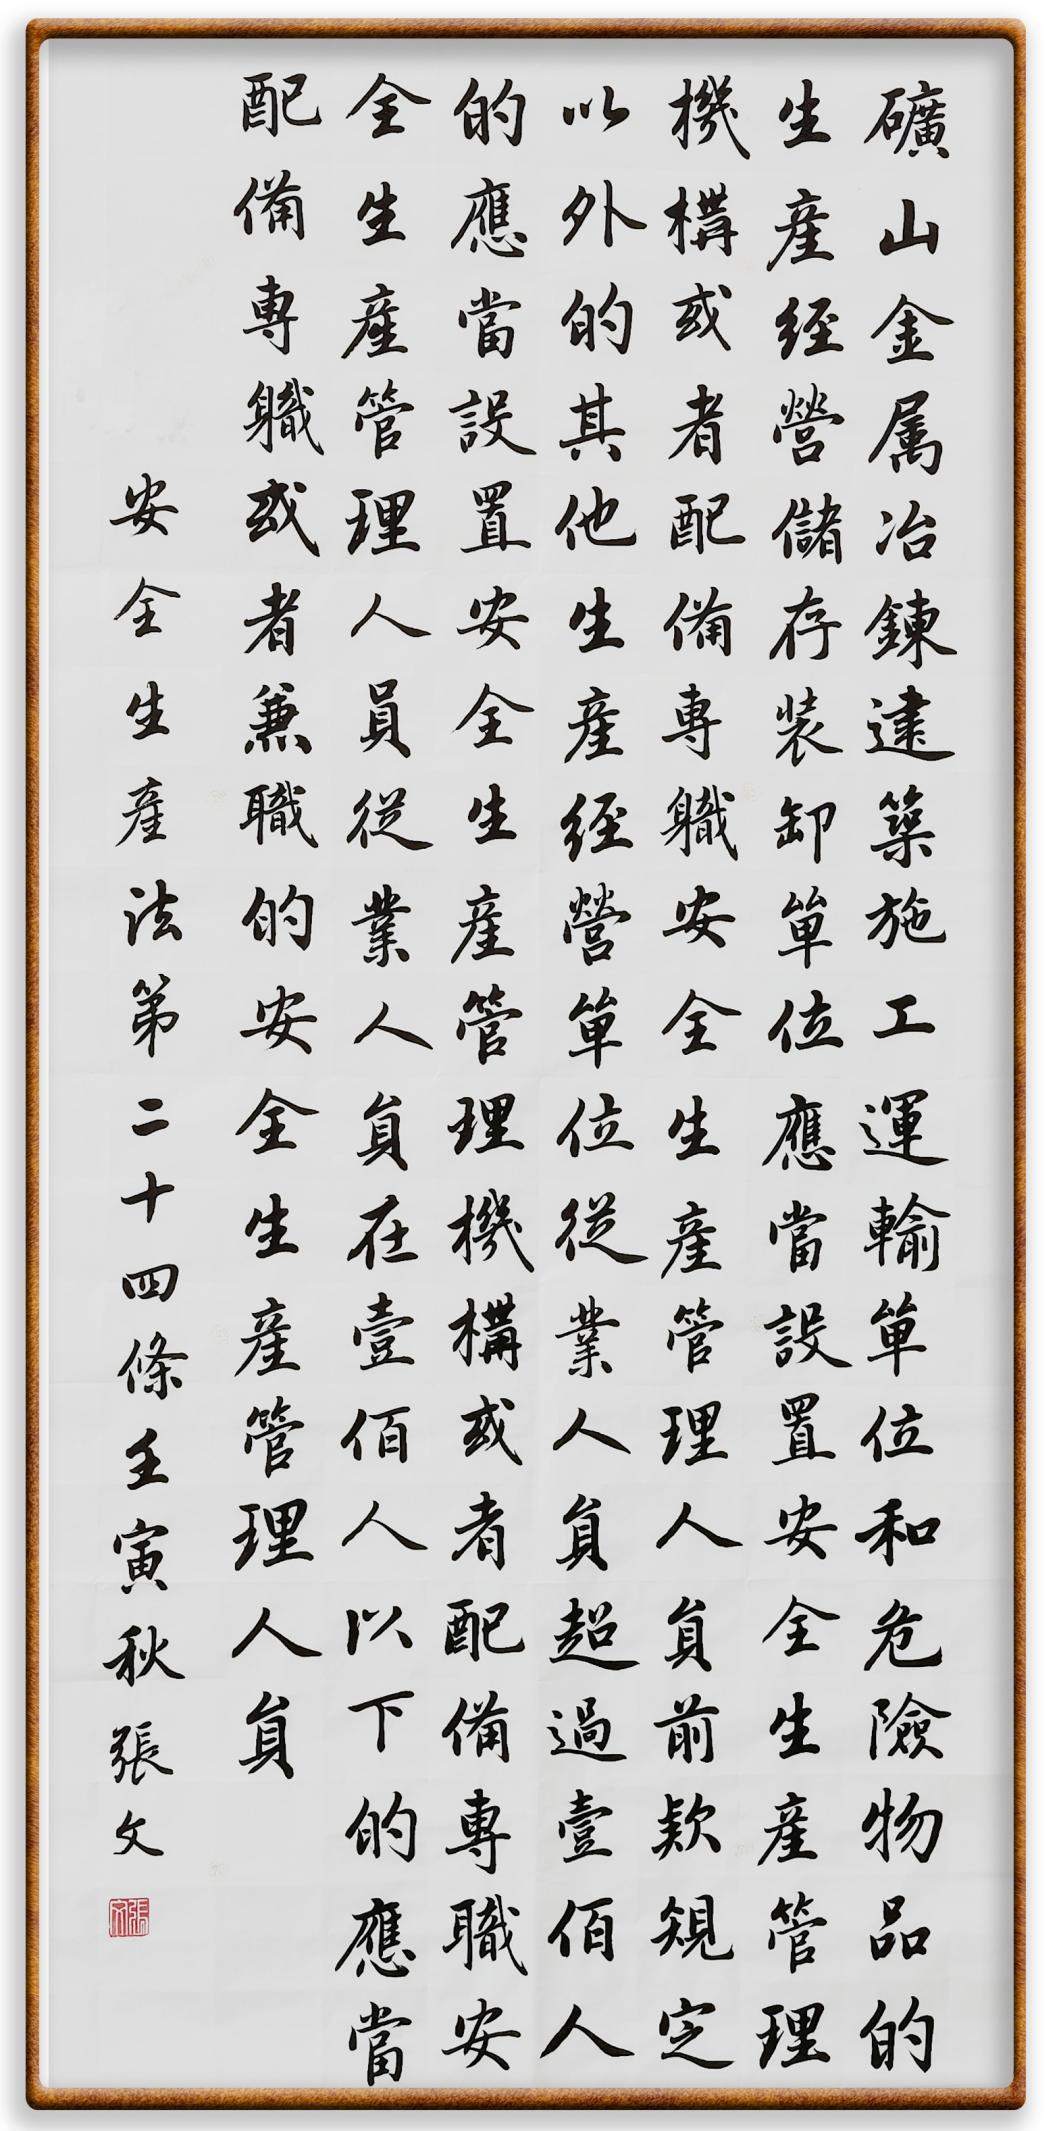 礦山金属冶鍊建築施工運輸單位和危險物品的
生産經營儲存装卸單位應當設置安全生産管理
機構或者配備專職安全生産管理人員前款規定
以外的其他生産經營單位從業人員超過壹佰人
的應當設置安全生産管理機構或者配備專職安
全生産管理人員從業人員在壹佰人以下的應當
配備專職或者兼職的安全生産管理人員
安全生産法第二十四條壬寅秋張文
張文